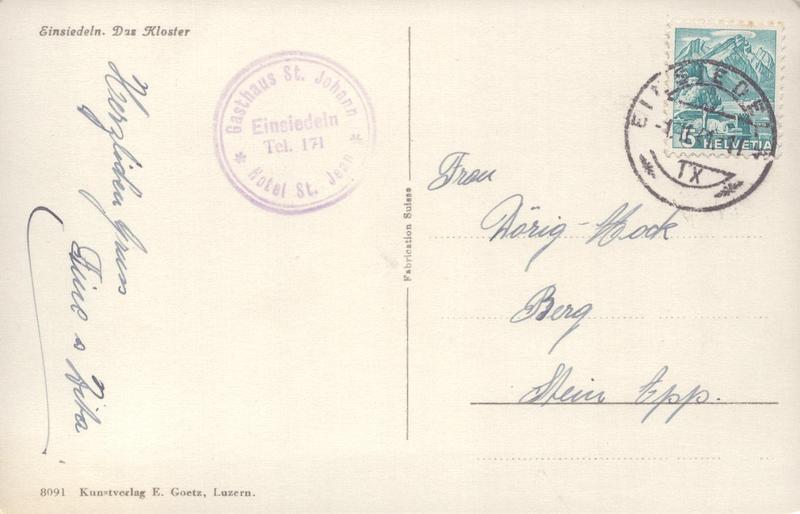 Einsiedeln. Das Kloster
Herzlichen Gruss
Gasthaus St. Johann
Einsiedeln
Tel. 171
Hotel St. Jean
Fabrication Suisse
HELVETIA
EINSIEDELN
Frau
Dörig-Mock
Berg
Stein App.
8091 Kunstverlag E. Goetz, Luzern.